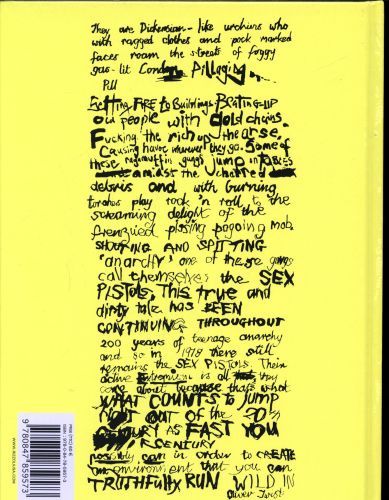 They are Dickensian - like urchins who
with ragged clothes and pock marked
faces roam the streets of foggy
gas-lit London Pillaging.
Pill
Setting FIRE to Buildings BEATING-UP
old people with Gold chains.
Fucking the rich up the arse.
Causing havoc wherever they go. Some of
these ragamuffin gangs jump on TABLES
amidst the charred
debris and with burning
torches play rock 'n roll to the
screaming delight of the
frenzied pissing pogoing mob.
SHOUTING AND SPITTING
'anarchy' one of these gangs
call themselves the SEX
PISTOLS. This true and
dirty tale has BEEN
CONTINUING THROUGHOUT
200 years of teenage anarchy
and so in 1978 there still
remains the SEX PISTOLS. Their
active Extremism is all they
care about because that's what
WHAT COUNTS to JUMP
OUT OF the 20th
CENTURY AS FAST YOU
CENTURY
possibly can in order to CREATE
an environment that you can
TRUTHFULLY RUN WILD IN
Oliver Twist
9780847859573